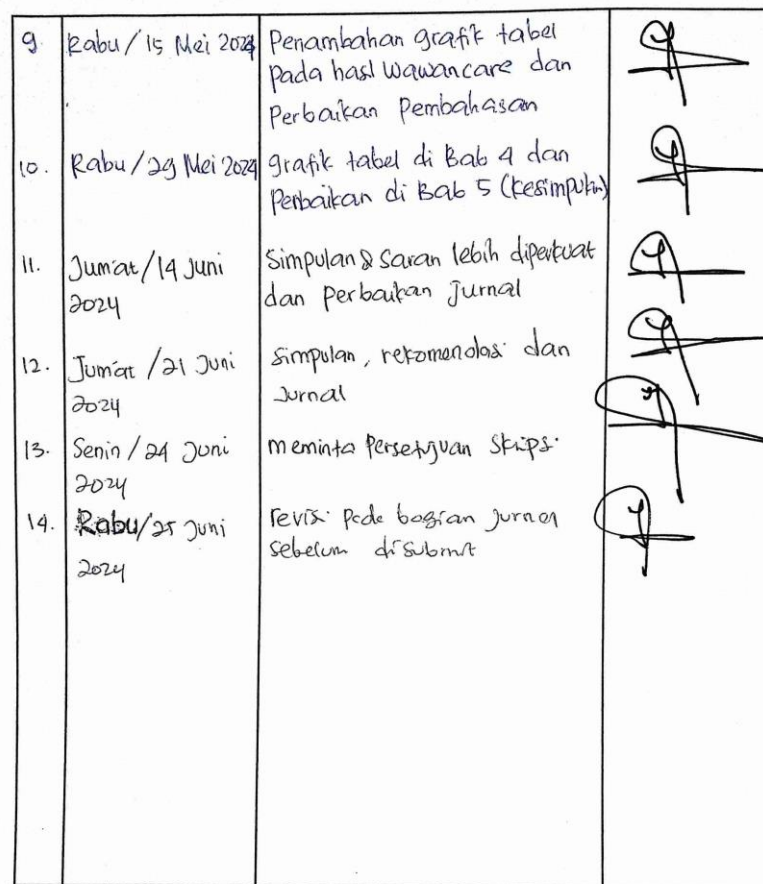 9. Rabu/15 Mei 2024 Penambahan grafik tabel
pada hasil wawancare dan
Perbaikan Pembahasan
10. Rabu/29 Mei 2024 grafik tabel di Bab 4 dan
Perbaikan di Bab 5 (kesimpulan)
11. Jum'at/14 Juni Simpulan & Saran lebih diperkuat
2024 dan Perbaikan Jurnal
12. Jum'at/21 Juni Simpulan, rekomendasi dan
2024 Jurnal
13. Senin/24 Juni meminta Persetujuan Skripsi
2024
14. Rabu/25 Juni revisi pada bagian jurnal
2024 sebelum disubmit